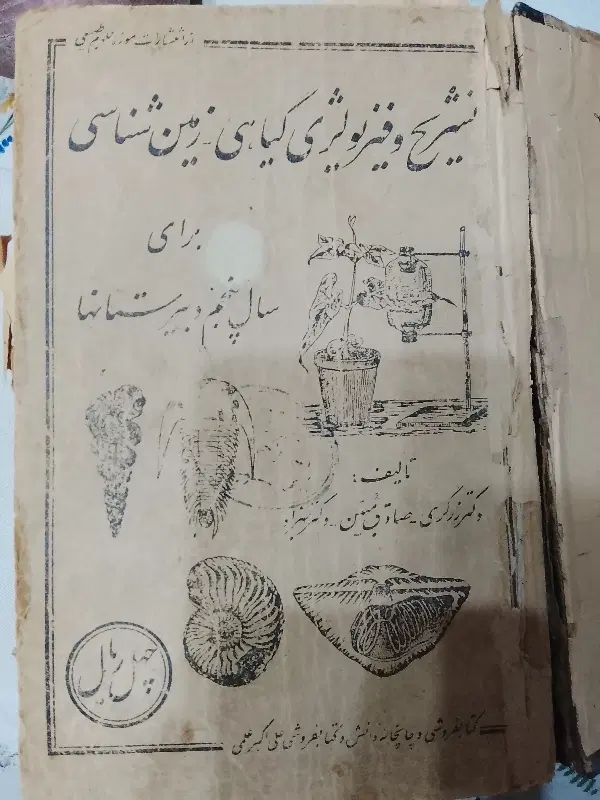 از انتشارات موزه علوم طبیعی
تشریح و فیزیولژی گیاهی - زمین شناسی
برای
سال پنجم دبیرستانها
تألیف:
دکتر زرگری - صادق مبین - دکتر بهزاد
چهل ریال
کتابفروشی و چاپخانه دانش و کتابفروشی علی اکبر علمی